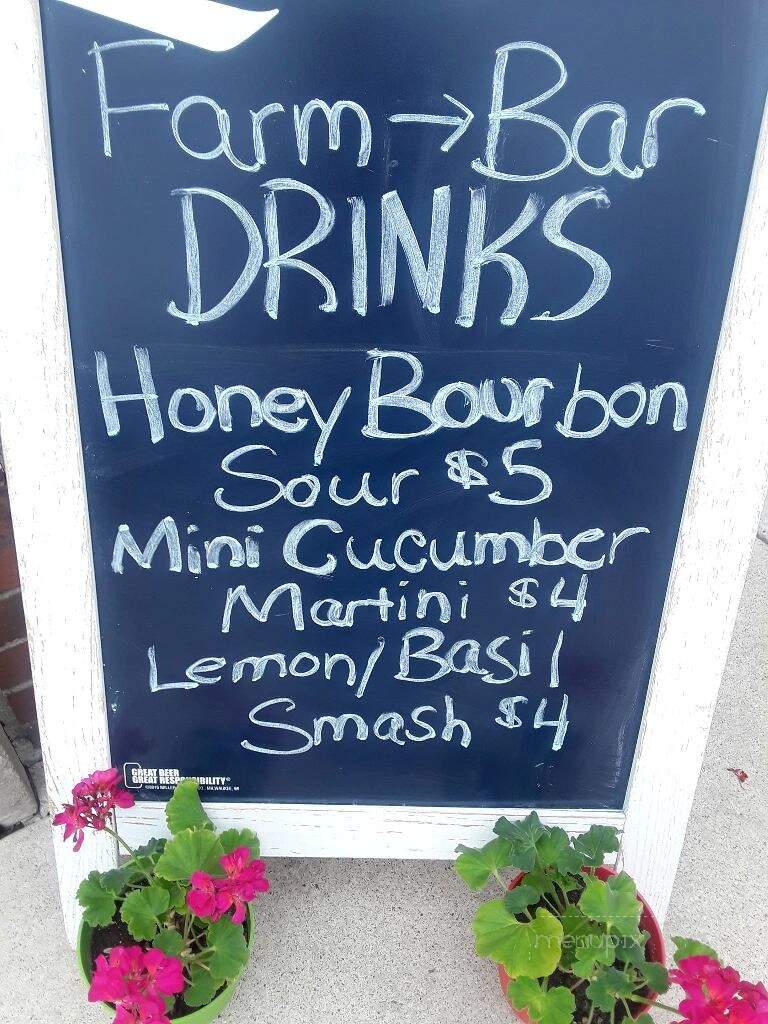 Farm → Bar
DRINKS
Honey Bourbon
Sour $5
Mini Cucumber
Martini $4
Lemon/Basil
Smash $4
GREAT BEER
GREAT RESPONSIBILITY®
MILWAUKEE, WI
menupix